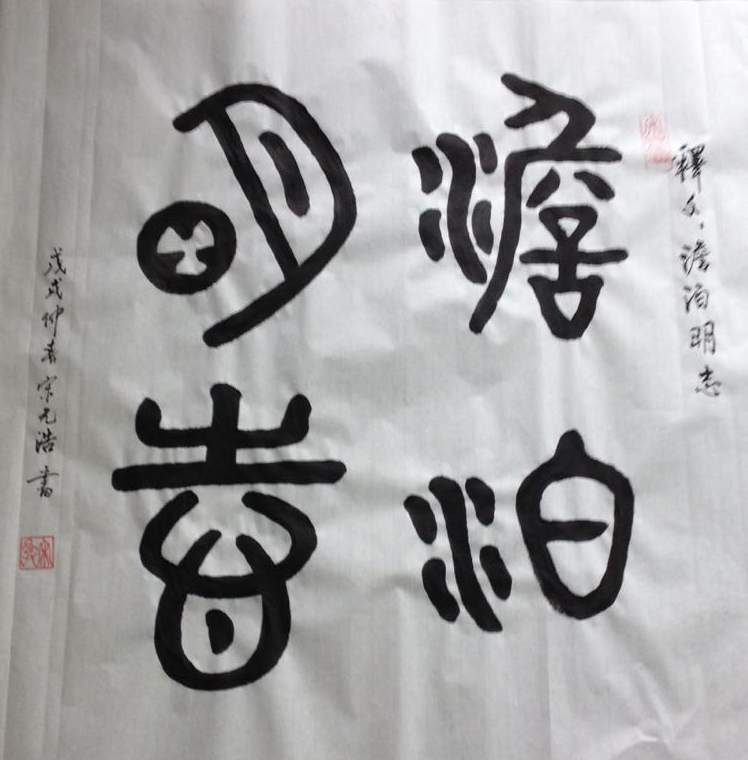 釋文：澹泊明志
澹泊
明志
戊戌仲春宋元浩書